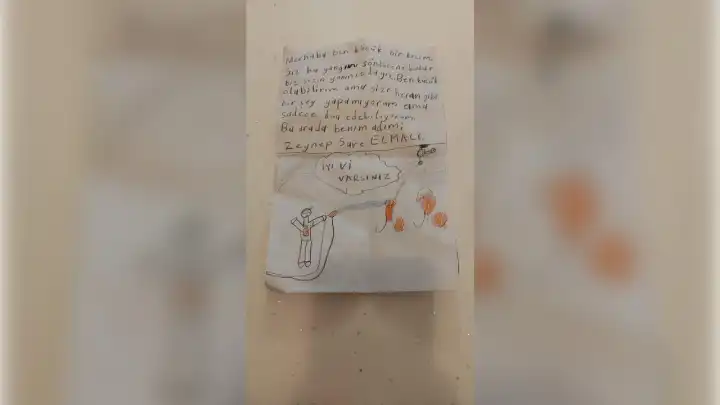 Merhaba ben küçük bir kızım
Siz bu yangını söndürene kadar
biz sizin yanınızdayız. Ben küçük
olabilirim ama size herangibi
bir şey yapamıyorum ama
sadece dua edebiliyorum
Bu arada benim adım;
Zeynep Sare ELMALI.
İYİ Kİ
VARSINIZ